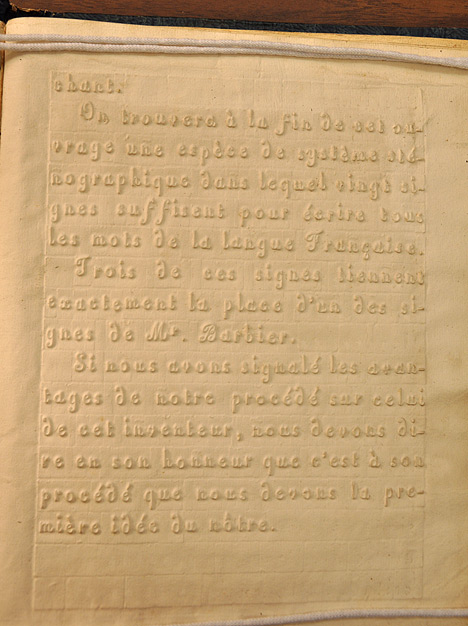 chant.
On trouvera à la fin de cet ou-
vrage une espèce de système sté-
nographique dans lequel vingt si-
gnes suffisent pour écrire tous
les mots de la langue Française.
Trois de ces signes tiennent
exactement la place d'un des si-
gnes de Mr. Barbier.
Si nous avons signalé les avan-
tages de notre procédé sur celui
de cet inventeur, nous devons di-
re en son honneur que c'est à son
procédé que nous devons la pre-
mière idée du nôtre.